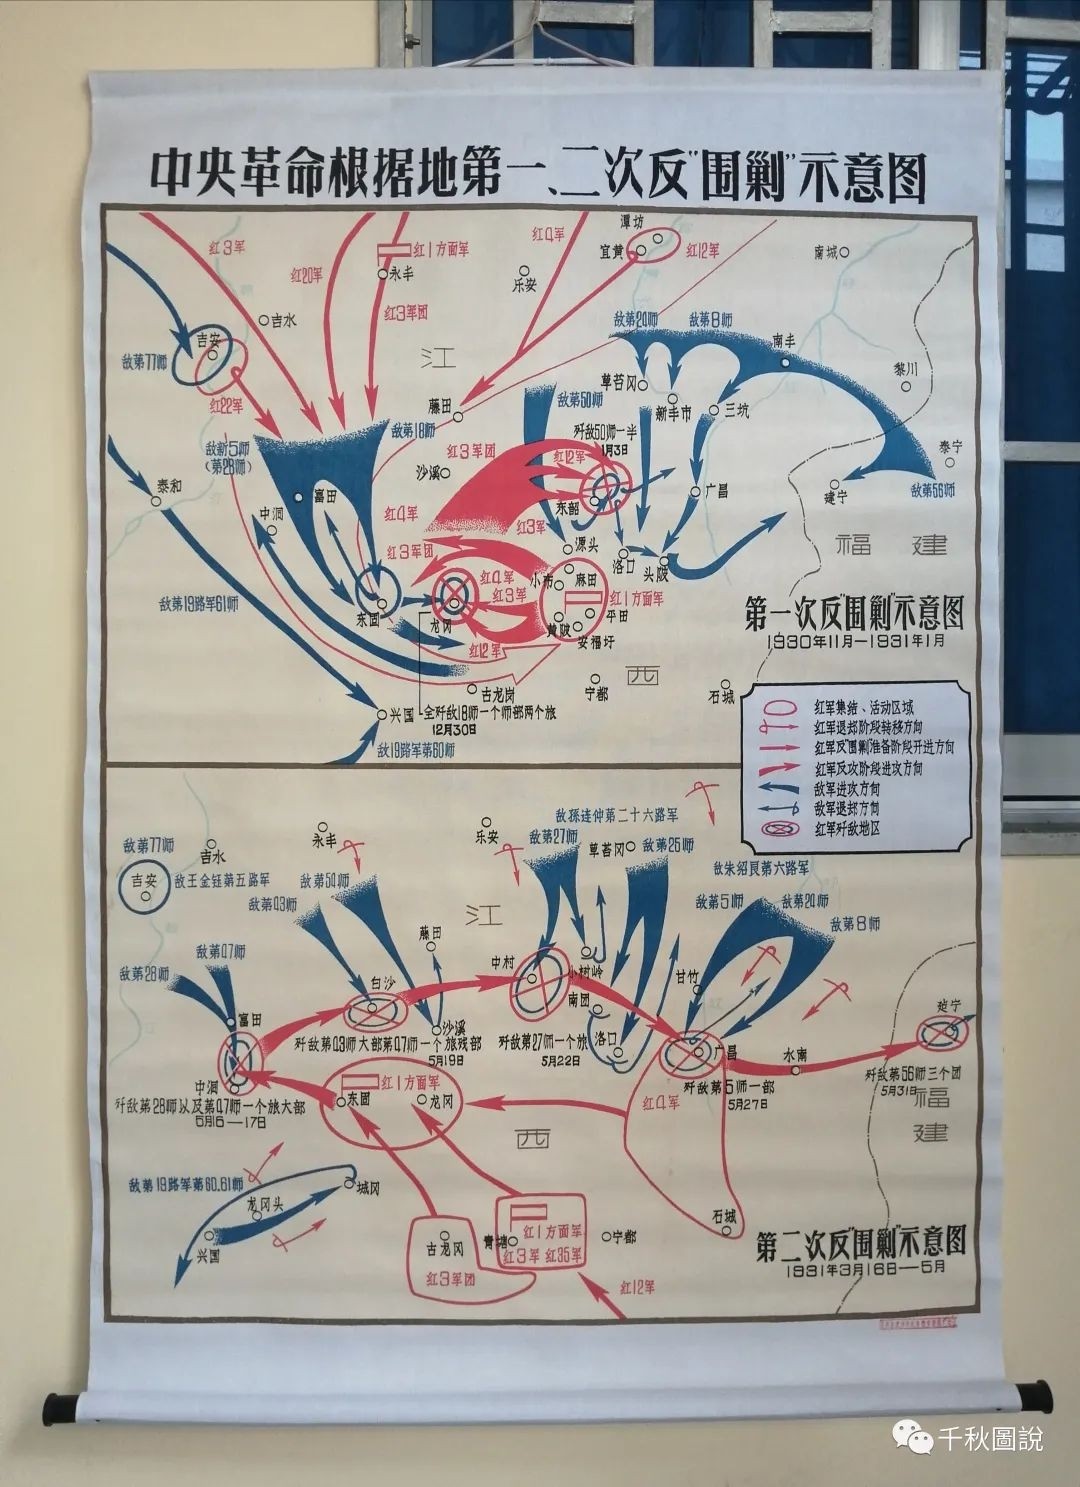 中央革命根据地第一、二次反"围剿"示意图
潭坊
红3军
红1方面军
红4军
宜黄
红12军
南城
红20军
永丰
乐安
红3军团
吉水
敌第24师
敌第8师
吉安
江
南丰
敌第77师
黎川
草苔冈
红22军
敌第50师
藤田
新丰市
三坑
敌第18师
歼敌50师一半
1月3日
敌新5师
(第28师)
红3军团
红12军
泰宁
沙溪
泰和
富田
广昌
建宁
敌第56师
东韶
中洞
红4军
红3军
源头
福建
红3军团
洛口
头陂
小布
麻田
红4军
红3军
红1方面军
敌第19路军61师
东固
龙冈
平田
黄陂
安福圩
第一次反"围剿"示意图
1930年11月—1931年1月
红12军
西
古龙岗
宁都
石城
兴国
全歼敌18师一个师部两个旅
12月30日
敌19路军第60师
红军集结、活动区域
红军退却阶段转移方向
红军反"围剿"准备阶段开进方向
红军反攻阶段进攻方向
敌军进攻方向
敌军退却方向
红军歼敌地区
敌孫连仲第二十六路军
永丰
乐安
敌第77师
吉水
敌第27师
草苔冈
敌第25师
敌朱绍良第六路军
吉安
敌王金钰第五路军
敌第54师
敌第43师
敌第5师
敌第24师
江
敌第8师
藤田
敌第47师
敌第28师
中村
白沙
小树岭
甘竹
南团
建宁
富田
沙溪
洛口
广昌
歼敌第43师大部第47师一个旅残部
5月19日
歼敌第27师一个旅
5月22日
水南
歼敌第56师三个团
5月31日
中洞
红1方面军
歼敌第5师一部
5月27日
东固
龙冈
歼敌第28师以及第47师一个旅大部
5月16—17日
红4军
福建
西
敌第19路军第60.61师
城冈
龙冈头
石城
兴国
古龙冈
青塘
红1方面军
红3军 红35军
宁都
第二次反"围剿"示意图
1931年3月16日—5月
红3军团
红12军
千秋圖說